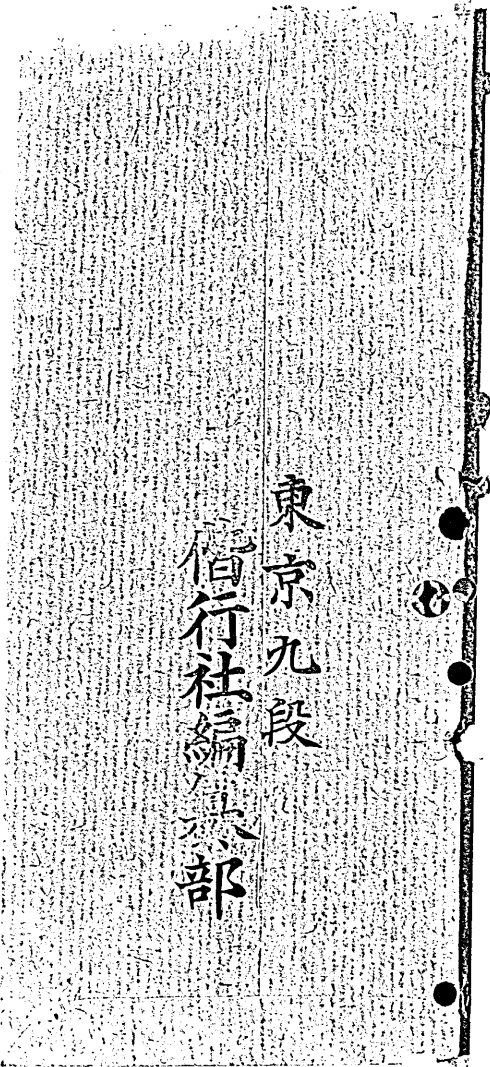 東京九段
偕行社編纂部